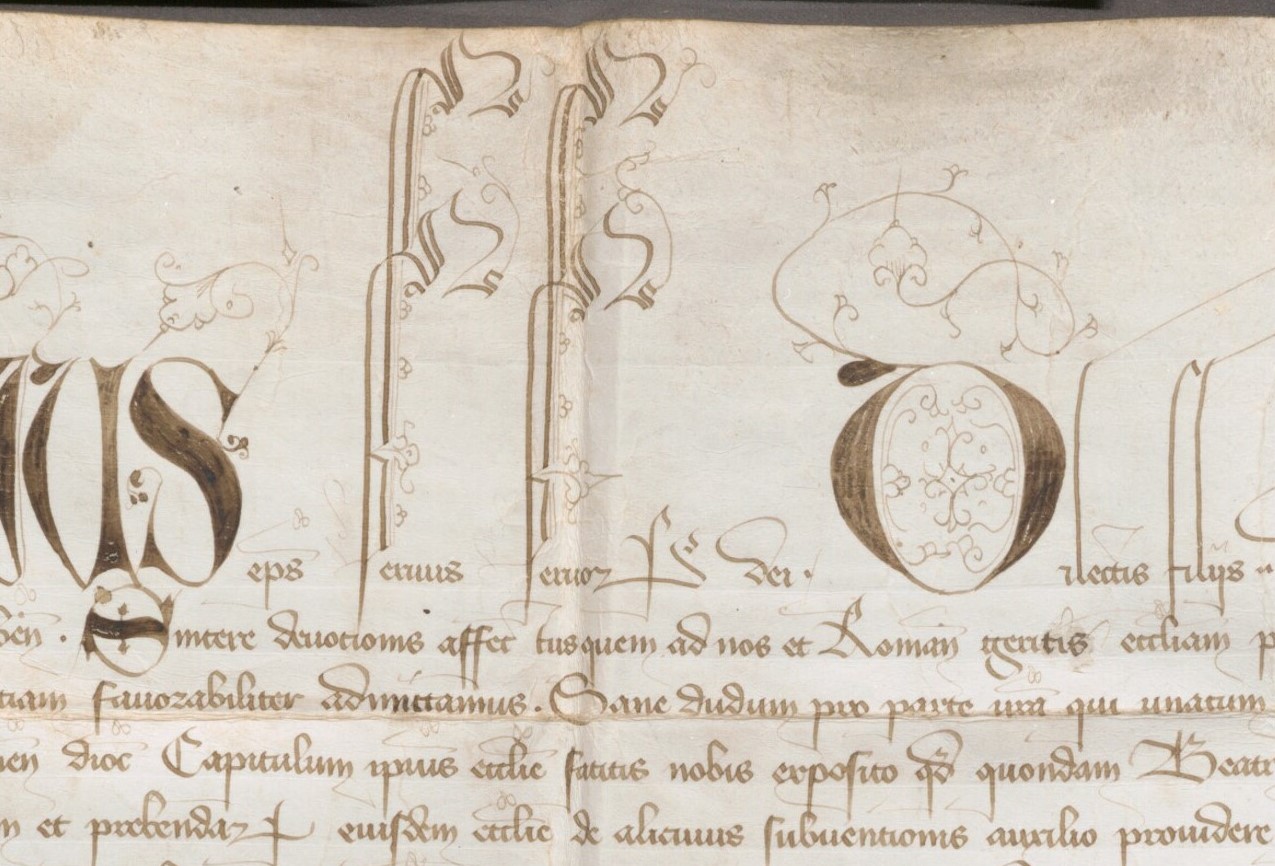 us eps seruus seruor̄ dei · Dilectis filijs
ben̄ · Sincere deuotionis affectus quem ad nos et Roman̄ geritis eccliam̄
tiam fauorabiliter admittamus . Sane dudum pro parte ur̄a qui unacum
dioc̄ Capitulum ipius ecclie facitis nobis exposito qd̄ quondam Beatr
et prebendar̄ eiusdem ecclie de alicuius subuentionis auxilio prouidere